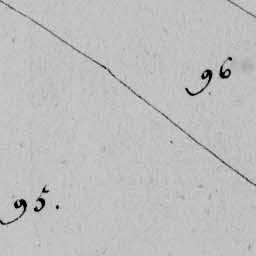 96
95.